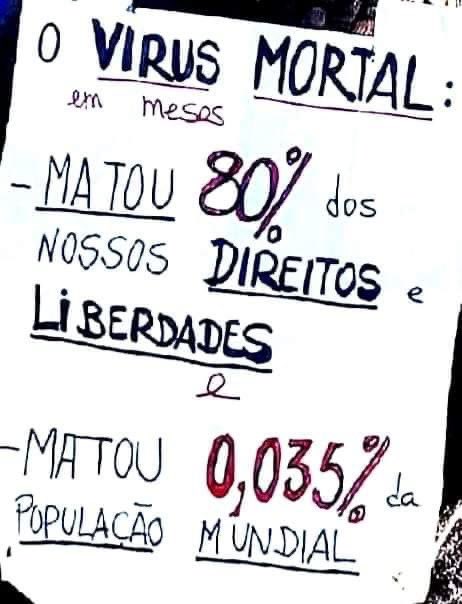 O VIRUS MORTAL:
em meses
- MATOU 80% dos
NOSSOS DIREITOS e
LiBERDADES
e
- MATOU 0,035% da
POPULAÇÃO MUNDIAL